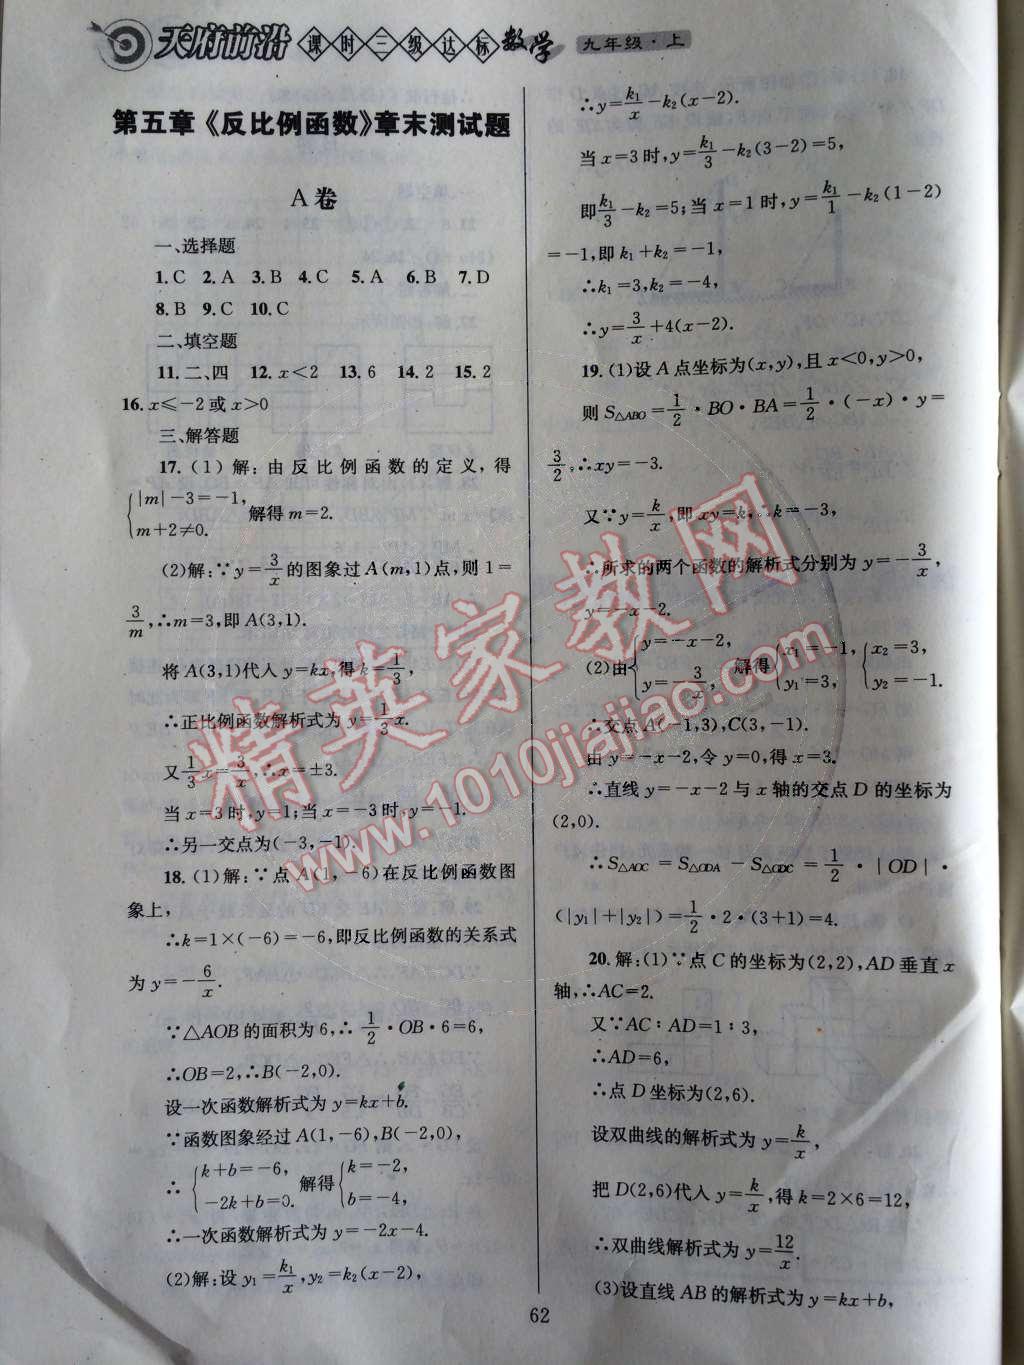 天府前沿 课时三级达标 数学 九年级·上
第五章《反比例函数》章末测试题
A卷
一、选择题
1.C 2.A 3.B 4.C 5.A 6.B 7.D
8.B 9.C 10.C
二、填空题
11.二、四 12.x<2 13.6 14.2 15.2
16.x≤-2或x>0
三、解答题
17.(1)解:由反比例函数的定义,得
{|m|-3=-1, m+2≠0. 解得m=2.
(2)解:∵y=3/x的图象过A(m,1)点,则1=
3/m,∴m=3,即A(3,1).
将A(3,1)代入y=kx,得k=1/3,
∴正比例函数解析式为y=1/3x.
又1/3x=3/x,∴x=±3.
当x=3时,y=1;当x=-3时,y=-1.
∴另一交点为(-3,-1).
18.(1)解:∵点A(1,-6)在反比例函数图
象上,
∴k=1×(-6)=-6,即反比例函数的关系式
为y=-6/x.
∵△AOB的面积为6,∴1/2·OB·6=6,
∴OB=2,∴B(-2,0).
设一次函数解析式为y=kx+b.
∵函数图象经过A(1,-6),B(-2,0),
∴{k+b=-6, -2k+b=0. 解得{k=-2, b=-4,
∴一次函数解析式为y=-2x-4.
(2)解:设y₁=k₁/x,y₂=k₂(x-2),
∴y=k₁/x-k₂(x-2).
当x=3时,y=k₁/3-k₂(3-2)=5,
即k₁/3-k₂=5;当x=1时,y=k₁/1-k₂(1-2)
=-1,即k₁+k₂=-1,
∴k₁=3,k₂=-4,
∴y=3/x+4(x-2).
19.(1)设A点坐标为(x,y),且x<0,y>0,
则S△ABO=1/2·BO·BA=1/2·(-x)·y=
3/2,∴xy=-3.
又∵y=k/x,即xy=k,∴k=-3,
∴所求的两个函数的解析式分别为y=-3/x,
y=-x-2.
(2)由{y=-x-2, y=-3/x, 解得{x₁=-1, y₁=3, {x₂=3, y₂=-1.
∴交点A(-1,3),C(3,-1).
由y=-x-2,令y=0,得x=3.
∴直线y=-x-2与x轴的交点D的坐标为
(2,0).
∴S△AOC=S△ODA-S△ODC=1/2·|OD|·
(|y₁|+|y₂|)=1/2·2·(3+1)=4.
20.解:(1)∵点C的坐标为(2,2),AD垂直x
轴,∴AC=2.
又∵AC∶AD=1∶3,
∴AD=6,
∴点D坐标为(2,6).
设双曲线的解析式为y=k/x,
把D(2,6)代入y=k/x,得k=2×6=12,
∴双曲线解析式为y=12/x.
(3)设直线AB的解析式为y=kx+b,
62
精英家教网
www.1010jiajiao.com